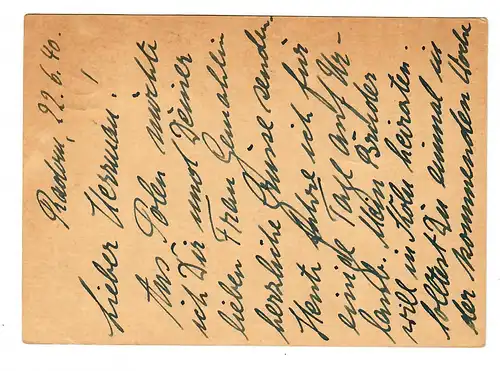 Radom, 22.6.40.
Lieber Herman!
Aus Polen möchte
ich Dir und Deiner
lieben Frau Gemahlin
herzliche Grüsse senden.
Heute fahre ich für
einige Tage auf Ur-
laub. Mein Bruder
will in Köln heiraten.
Solltest Du einmal in
der kommenden Woche